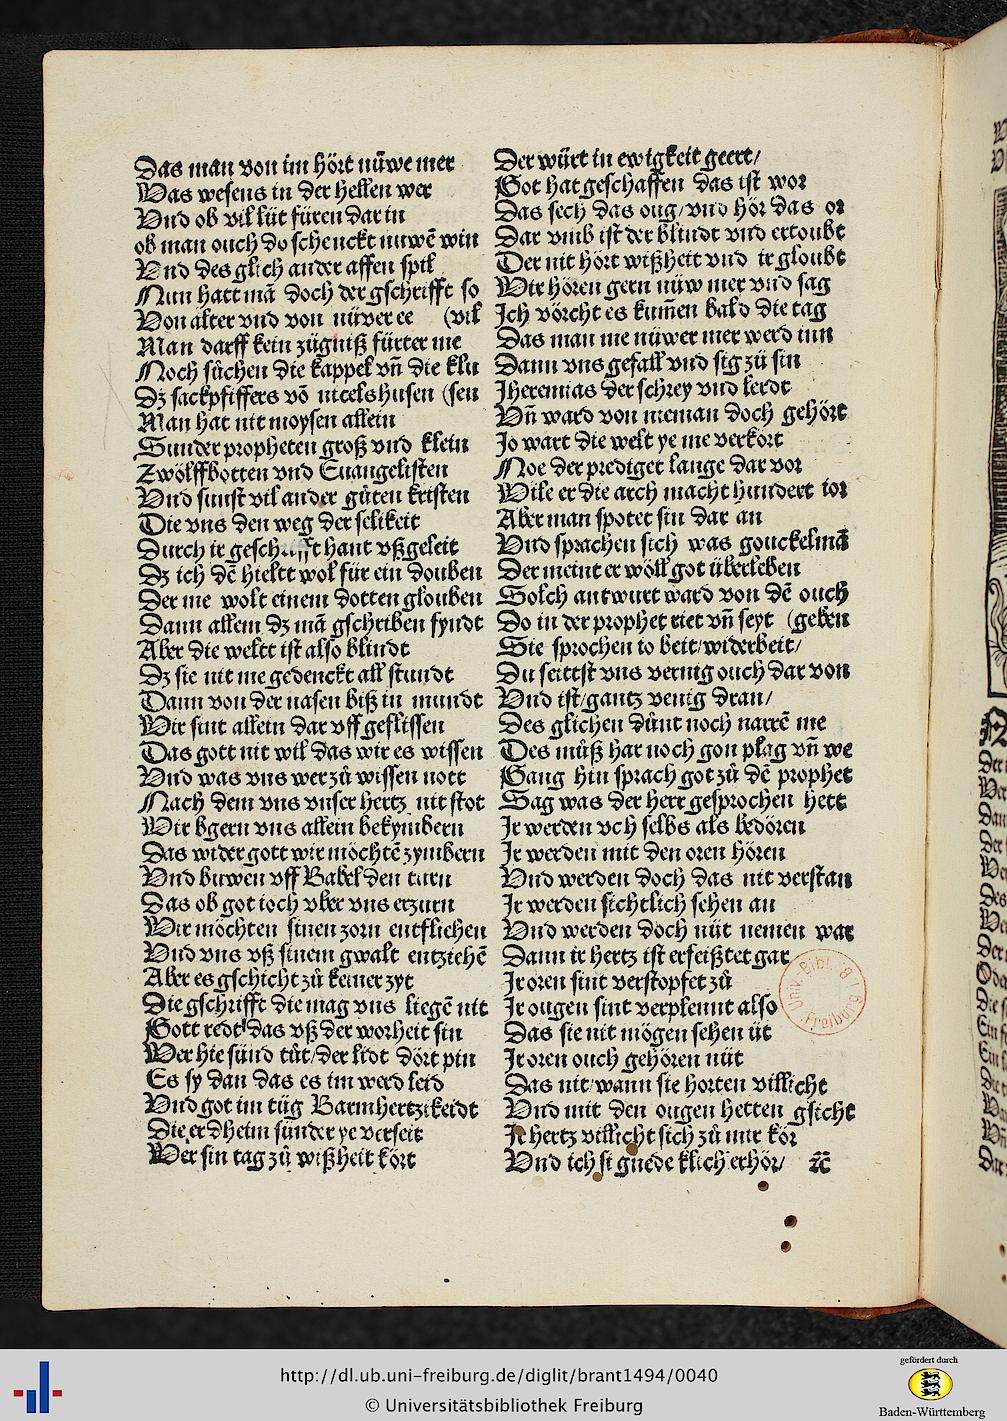 Das man von im hört nüwe mer
Was wesens in der hellen wer
Vnd ob vil lüt füren dar in
ob man ouch do schenckt nuwē win
Vnd des glich ander affen spil
Nun hatt mā doch der gschrifft so
Von alter vnd von nüver ee (vil
Man darff kein zügniß fürter me
Noch sůchen die kappel vn̄ die klu
Dz sackpfiffers vō nickelshusen (sen
Man hat nit moysen allein
Sunder propheten groß vnd klein
Zwölffbotten vnd Euangelisten
Vnd sunst vil ander gůten kristen
Die vns den weg der selikeit
Durch ir geschrifft hant vßgeleit
Dz ich dē hieltt wol für ein douben
Der me wolt einem dotten glouben
Dann allem dz mā gschriben fyndt
Aber die weltt ist also blindt
Dz sie nit me gedenckt all stundt
Dann von der nasen biß in mundt
Wir sint allein dar vff geflissen
Das gott nit wil das wir es wissen
Vnd was vns wer zů wissen nott
Nach dem vns vnser hertz nit stot
Wir bgern vns allein bekymbern
Das wider gott wir möchtē zymbern
Vnd buwen vff Babel den turn
Das ob got ioch vber vns erzurn
Wir möchten sinen zorn entfliehen
Vnd vns vß sinem gwalt entziehē
Aber es gschicht zů keiner zyt
Die gschrifft die mag vns liegē nit
Gott redt das vß der worheit sin
Wer hie sünd tůt/der lidt dört pin
Es sy dan das es im werd leid
Vnd got im tüg Barmhertzikeidt
Die er dheim sünder ye verseit
Wer sin tag zů wißheit kört
Der würt in ewigkeit geert/
Got hat geschaffen das ist wor
Das sech das oug/vnd hör das or
Dar vmb ist der blindt vnd ertoubt
Der nit hört wißheit vnd ir gloubt
Wir hören gern nüw mer vnd sag
Ich vörcht es kum̄en bald die tag
Das man me nüwer mer werd inn
Dann vns gefall vnd sig zů sin
Jheremias der schrey vnd lerdt
Vn̄ ward von nieman doch gehört
Jo wart die welt ye me verkört
Noe der prediget lange dar vor
Wile er die arch macht hundert ior
Aber man spotet sin dar an
Vnd sprachen sich was gouckelmā
Der meint er wöll got überleben
Solch antwurt ward von dē ouch
Do in der prophet riet vn̄ seyt (geben
Sie sprochen io beit/widerbeit/
Du seittst vns vernig ouch dar von
Vnd ist/gantz venig dran/
Des glichen důnt noch narrē me
Des můß har noch gon plag vn̄ we
Gang hin sprach got zů dē prophet
Sag was der herr gesprochen hett
Jr werden vch selbs als bedören
Jr werden mit den oren hören
Vnd werden doch das nit verstan
Jr werden sichtlich sehen an
Vnd werden doch nüt nemen war
Dann ir hertz ist erfeißtet gar
Jr oren sint verstopfet zů
Jr ougen sint verplennt also
Das sie nit mögen sehen üt
Jr oren ouch gehören nüt
Das nit/wann sie horten villicht
Vnd mit den ougen hetten gsicht
Jr hertz villicht sich zů mir kör
Vnd ich si gnedeklich erhör/ ⁊c̄
Univ.-Bibl. Freiburg i B
http://dl.ub.uni-freiburg.de/diglit/brant1494/0040
© Universitätsbibliothek Freiburg
gefördert durch
Baden-Württemberg